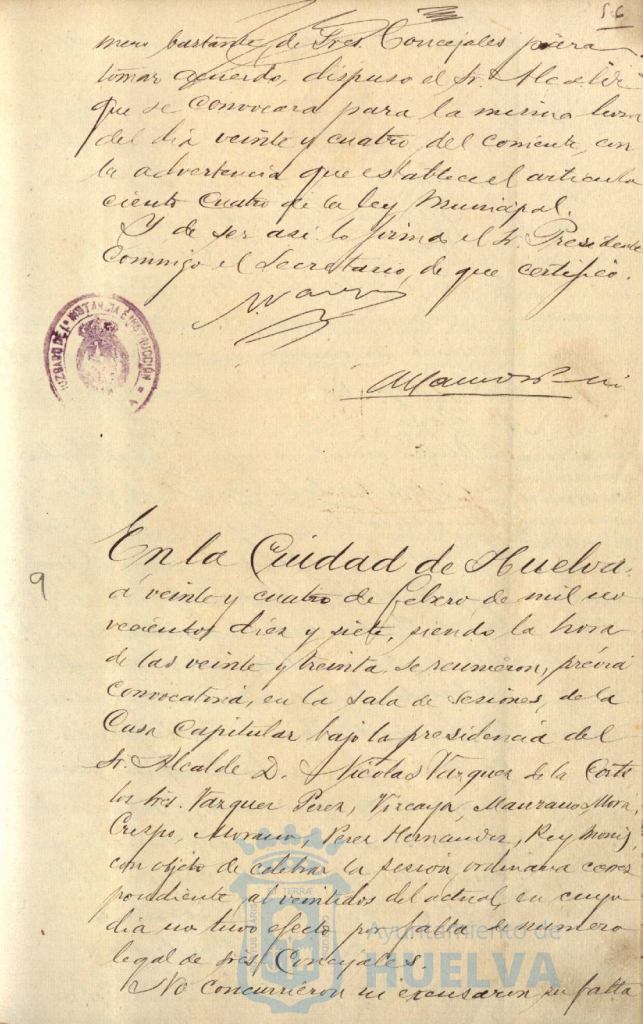 56
mero bastante de Sres. Concejales para
tomar acuerdo, dispuso el Sr. Alcalde
que se convocara para la misma hora
del dia veinte y cuatro, del corriente, con
la advertencia que establece el articulo
ciento cuatro de la ley Municipal.
Y de ser asi lo firma el Sr. Presidente
Conmigo el Secretario, de que certifico.
JUZGADO DE 1ª INSTANCIA E INSTRUCCIÓN
En la Ciudad de Huelva,
9
á veinte y cuatro de febrero de mil no
vecientos diez y siete, siendo la hora
de las veinte y treinta se reunieron, prévia
convocatoria, en la sala de sesiones, de la
Casa Capitular bajo la presidencia del
Sr. Alcalde D. Nicolas Vázquez de la Corte
los Sres. Vazquez Perez, Vizcaya, Manzano Mora,
Crespo, Morano, Perez Hernandez, Rey Moris,
con objeto de celebrar la sesión ordinaria corres
pondiente al veintidos del actual, en cuyo
dia no tuvo efecto por falta de numero
legal de Sres. Concejales.
No concurrieron ni excusaron su falta
Ayuntamiento de
HUELVA